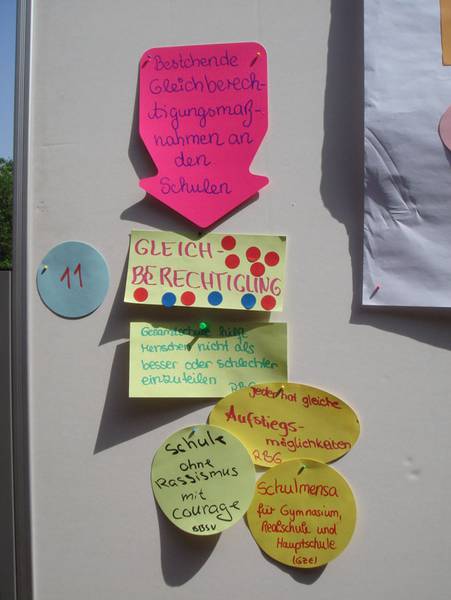 Bestehende
Gleichberech-
tigungsmaß-
nahmen an
den
Schulen
11
GLEICH-
BERECHTIGUNG
Gesamtschule hilft
Menschen nicht als
besser oder schlechter
einzuteilen RBG
jeder hat gleiche
Aufstiegs-
möglichkeiten
RBG
Schule
ohne
Rassismus
mit
courage
BBSV
Schulmensa
für Gymnasium,
Realschule und
Hauptschule
(GZE)